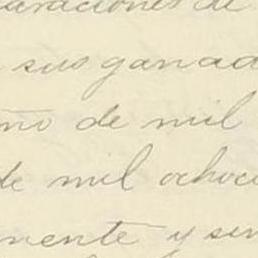 araciones de
sus ganad
ño de mil
de mil ochoci
mente y sin